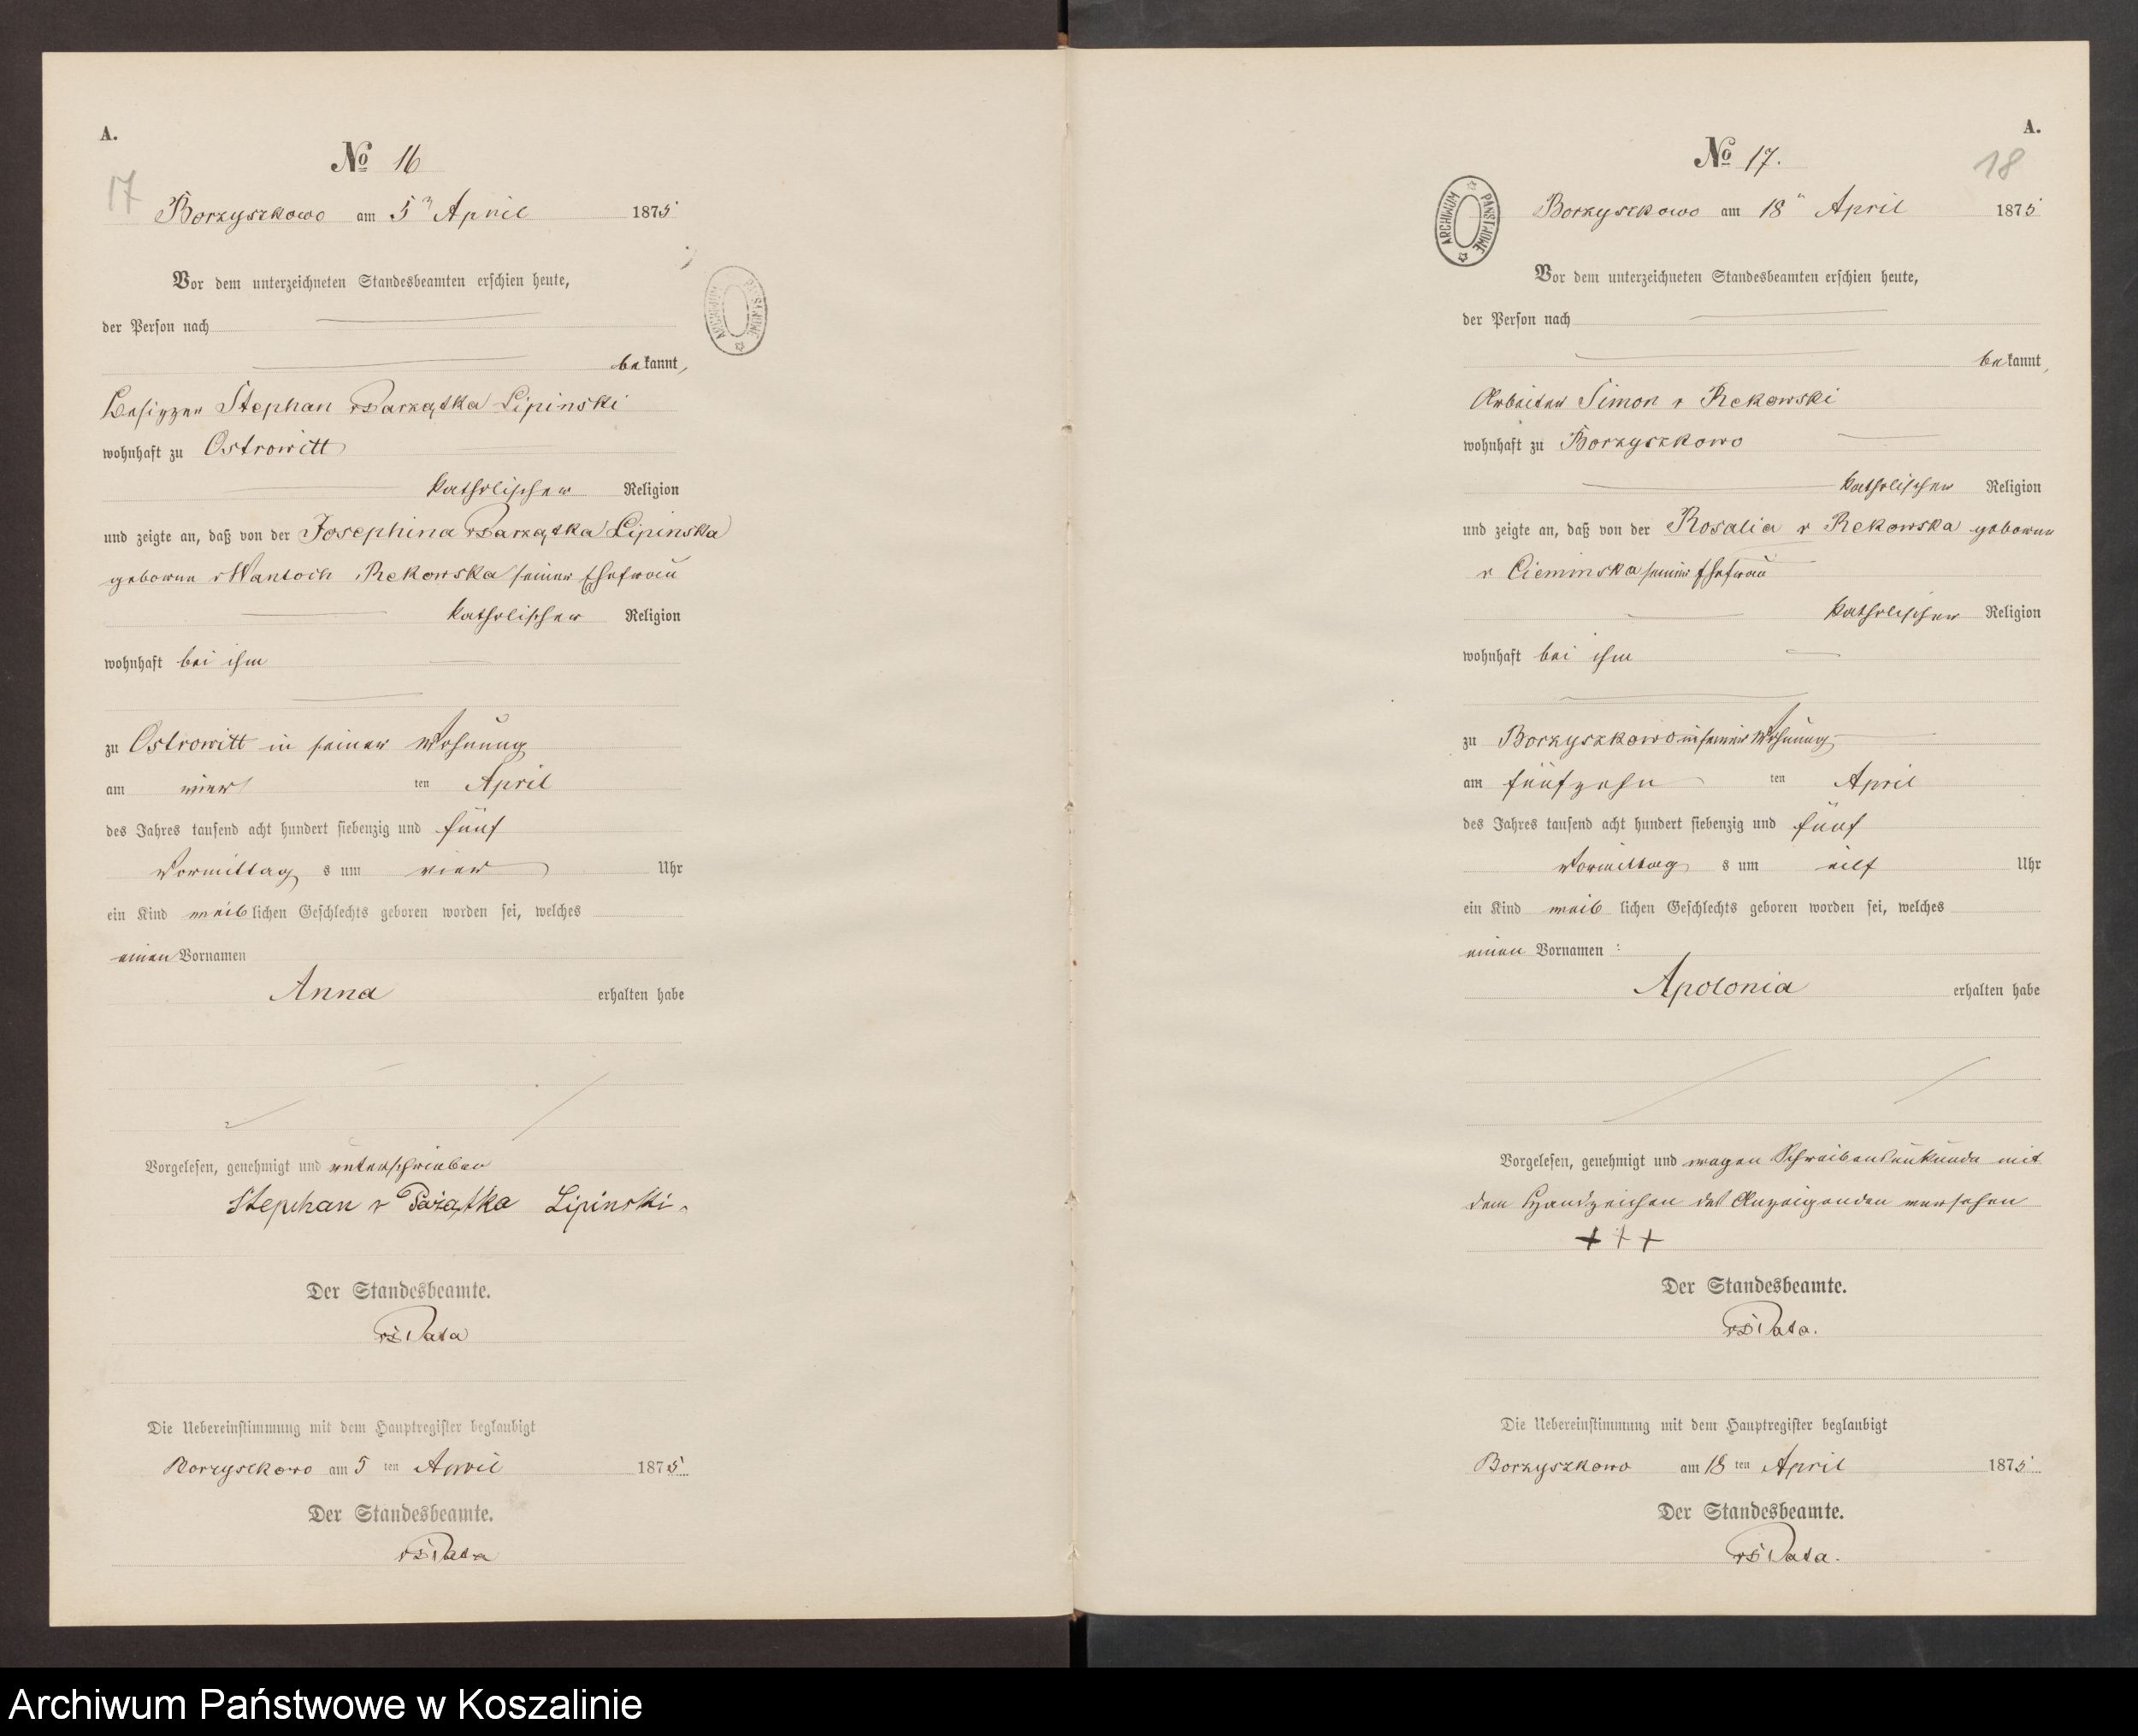 A.
No 16
17
Borzyszkowo am 5n April 1875
Vor dem unterzeichneten Standesbeamten erschien heute,
der Person nach
bekannt,
Besitzer Stephan v Parzątka Lipinski
wohnhaft zu Ostrowitt
katholischer Religion
und zeigte an, daß von der Josephina v Parzątka Lipinska
geborene v Wantoch Rekowska seiner Ehefrau
katholischer Religion
wohnhaft bei ihm
zu Ostrowitt in seiner Wohnung
am vier ten April
des Jahres tausend acht hundert siebenzig und fünf
Vormittag s um vier Uhr
ein Kind weiblichen Geschlechts geboren worden sei, welches
einen Vornamen
Anna erhalten habe
Vorgelesen, genehmigt und unterschrieben
Stephan v Lipinski
Der Standesbeamte.
Die Uebereinstimmung mit dem Hauptregister beglaubigt
Borzyszkowo am 5 ten April 1875
Der Standesbeamte.
ARCHIWUM PAŃSTWOWE
A.
No 17.
18
Borzyszkowo am 18n April 1875
Vor dem unterzeichneten Standesbeamten erschien heute,
der Person nach
bekannt,
Arbeiter Simon v Rekowski
wohnhaft zu Borzyszkowo
katholischer Religion
und zeigte an, daß von der Rosalia v Rekowska geborene
v Cieminska seiner Ehefrau
katholischer Religion
wohnhaft bei ihm
zu Borzyszkowo in seiner Wohnung
am fünfzehn ten April
des Jahres tausend acht hundert siebenzig und fünf
Vormittag s um eilf Uhr
ein Kind weib lichen Geschlechts geboren worden sei, welches
einen Vornamen :
Apolonia erhalten habe
Vorgelesen, genehmigt und wegen Schreibensunkunde mit
dem Handzeichen des Anzeigenden versehen
+ + +
Der Standesbeamte.
Die Uebereinstimmung mit dem Hauptregister beglaubigt
Borzyszkowo am 18 ten April 1875
Der Standesbeamte.
ARCHIWUM PAŃSTWOWE
Archiwum Państwowe w Koszalinie